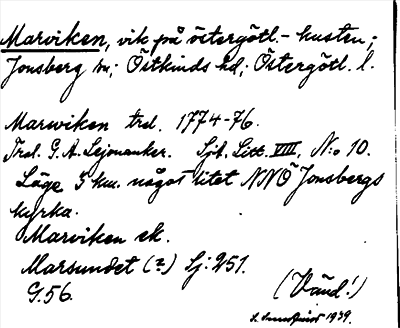 Marviken, vik på östergötl.-kusten;
Jonsberg sn; Östkinds hd; Östergötl. l.
Marwiken trsl. 1774-76.
Trsl. G. A. Lejonanker. Sjk. Litt. VIII, N:o 10.
Läge 5 km. något litet NNÖ Jonsbergs
kyrka.
Marviken ek.
Marsundet (?) Lj: 251.
G. 56.
(Vänd!)
1939.